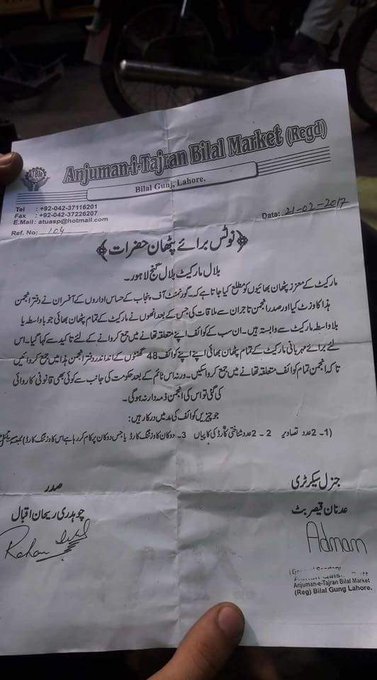 Anjuman-i-Tajran Bilal Market (Regd)
Bilal Gunj, Lahore.
Tel : +92-042-37116201
Fax : +92-042-37226207
E.Mail : atuasp@hotmail.com
Ref. No: 104
Data: 21-02-2017
﴿نوٹس برائے پٹھان حضرات﴾
بلال مارکیٹ بلال گنج لاہور۔
مارکیٹ کے معزز پٹھان بھائیوں کو مطلع کیا جاتا ہے کہ۔ گورنمنٹ آف پنجاب کے حساس اداروں کے آفسران نے دفتر انجمن
ہذا کا وزٹ کیا اور صدر انجمن تاجران سے ملاقات کی جس کے بعد انھوں نے مارکیٹ کے تمام پٹھان بھائی جو بلواسطہ یا
بلاواسطہ مارکیٹ سے وابستہ ہیں۔ ان سب کے کوائف اپنے متعلقہ تھانے میں جمع کروانے کے لئے تاکید سے کہا گیا۔ اس
لئے برائے مہربانی مارکیٹ کے تمام پٹھان بھائی اپنے اپنے کوائف 48 گھنٹوں کے اندر اندر دفتر انجمن ہذا میں جمع کروائیں
تاکہ انجمن تمام کوائف متعلقہ تھانے میں جمع کرواسکیں۔ ورنہ اس ٹائم کے بعد حکومت کی جانب سے کوئی بھی قانونی کاروائی
کی گئی تو اس کی انجمن ذمہ دار نہ ہوگی۔
جو چیزیں کوائف کی مد میں درکار ہیں:
(1۔ 2 عدد تصاویر 2۔ 2 عدد شناختی کارڈ کی کاپیاں 3۔ دوکان کا وزٹنگ کارڈ یا جس دوکان پر کام کر رہا ہے اس کا وزٹنگ کارڈ)
جنرل سیکرٹری
صدر
عدنان قیصر بٹ
چوہدری ریحان اقبال
Adnan
Rehan
Anjuman-e-Tajran Bilal Market
(Reg) Bilal Gung Lahore.